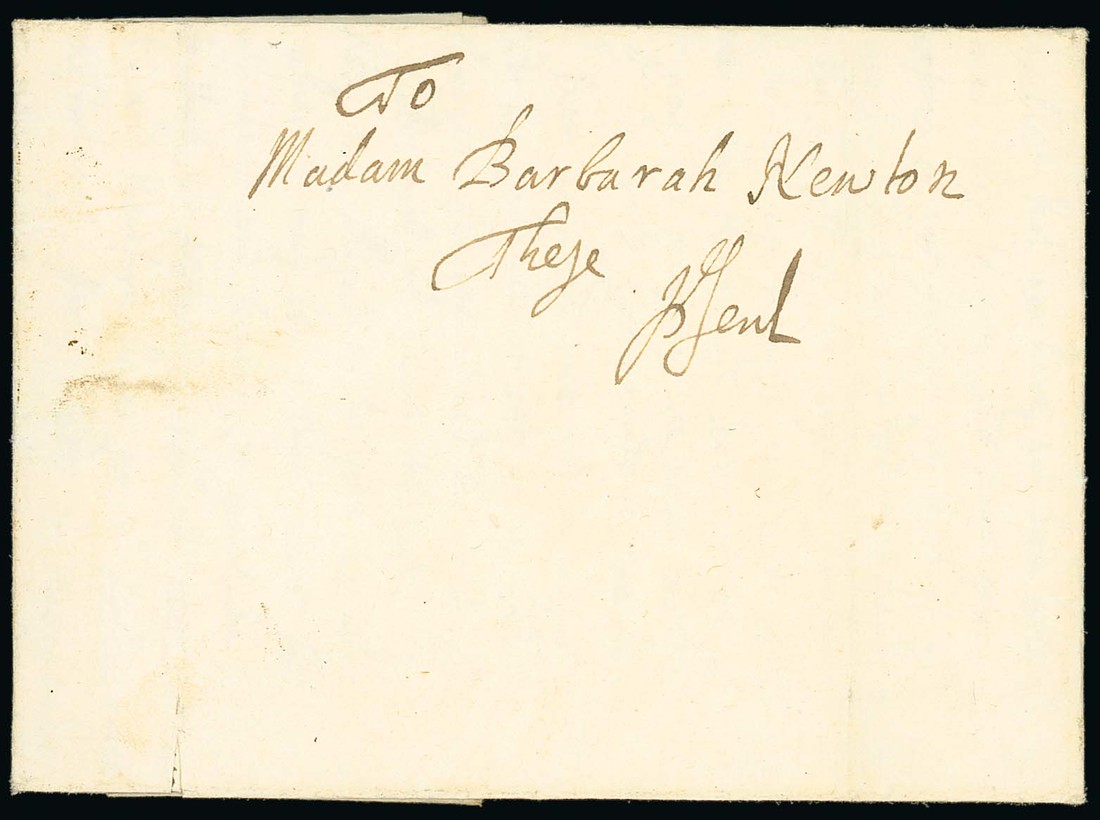 To
Madam Barbarah Newton
These
Psent